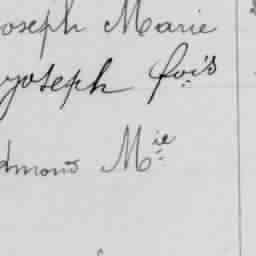 oseph Marie
Joseph fois
dmond Mie